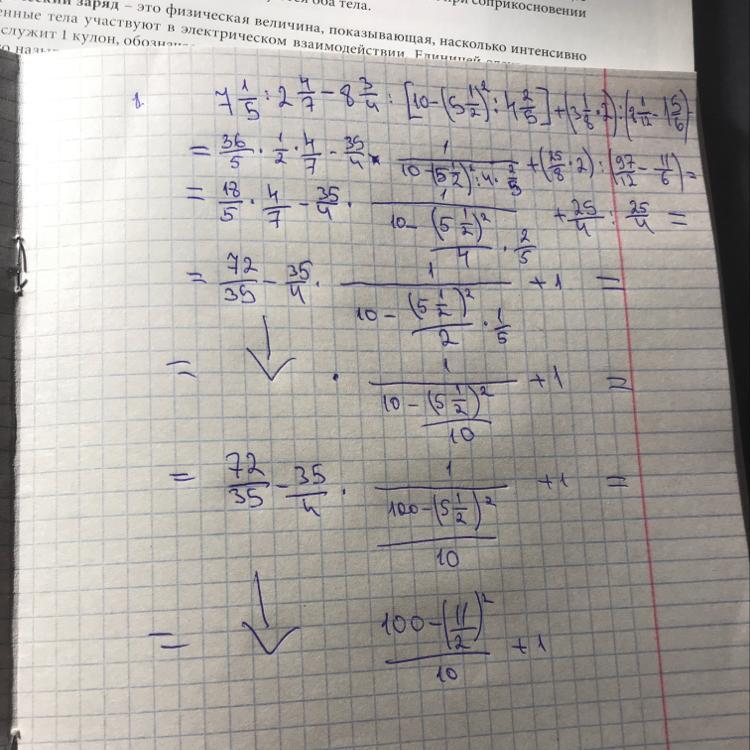 заряд – это физическая величина, показывающая, насколько интенсивно
тела участвуют в электрическом взаимодействии.
служит 1 кулон,
1. 7 1/5 : 2 4/7 - 8 3/4 : [10 - (5 1/2)² : 4 2/5] + (3 1/8 · 2) : (8 1/12 - 1 5/6) =
= 36/5 · 1/2 · 4/7 - 35/4 · 1/(10 - (5 1/2)² : 4 · 2/5) + (25/8 · 2) : (97/12 - 11/6) =
= 18/5 · 4/7 - 35/4 · 1/(10 - (5 1/2)²/4 · 2/5) + 25/4 : 25/4 =
= 72/35 - 35/4 · 1/(10 - (5 1/2)²/2 · 1/5) + 1 =
= ↓ · 1/(10 - (5 1/2)²/10) + 1 =
= 72/35 - 35/4 · 1/((100 - (5 1/2)²)/10) + 1 =
= ↓ (100 - (11/2)²)/10 + 1